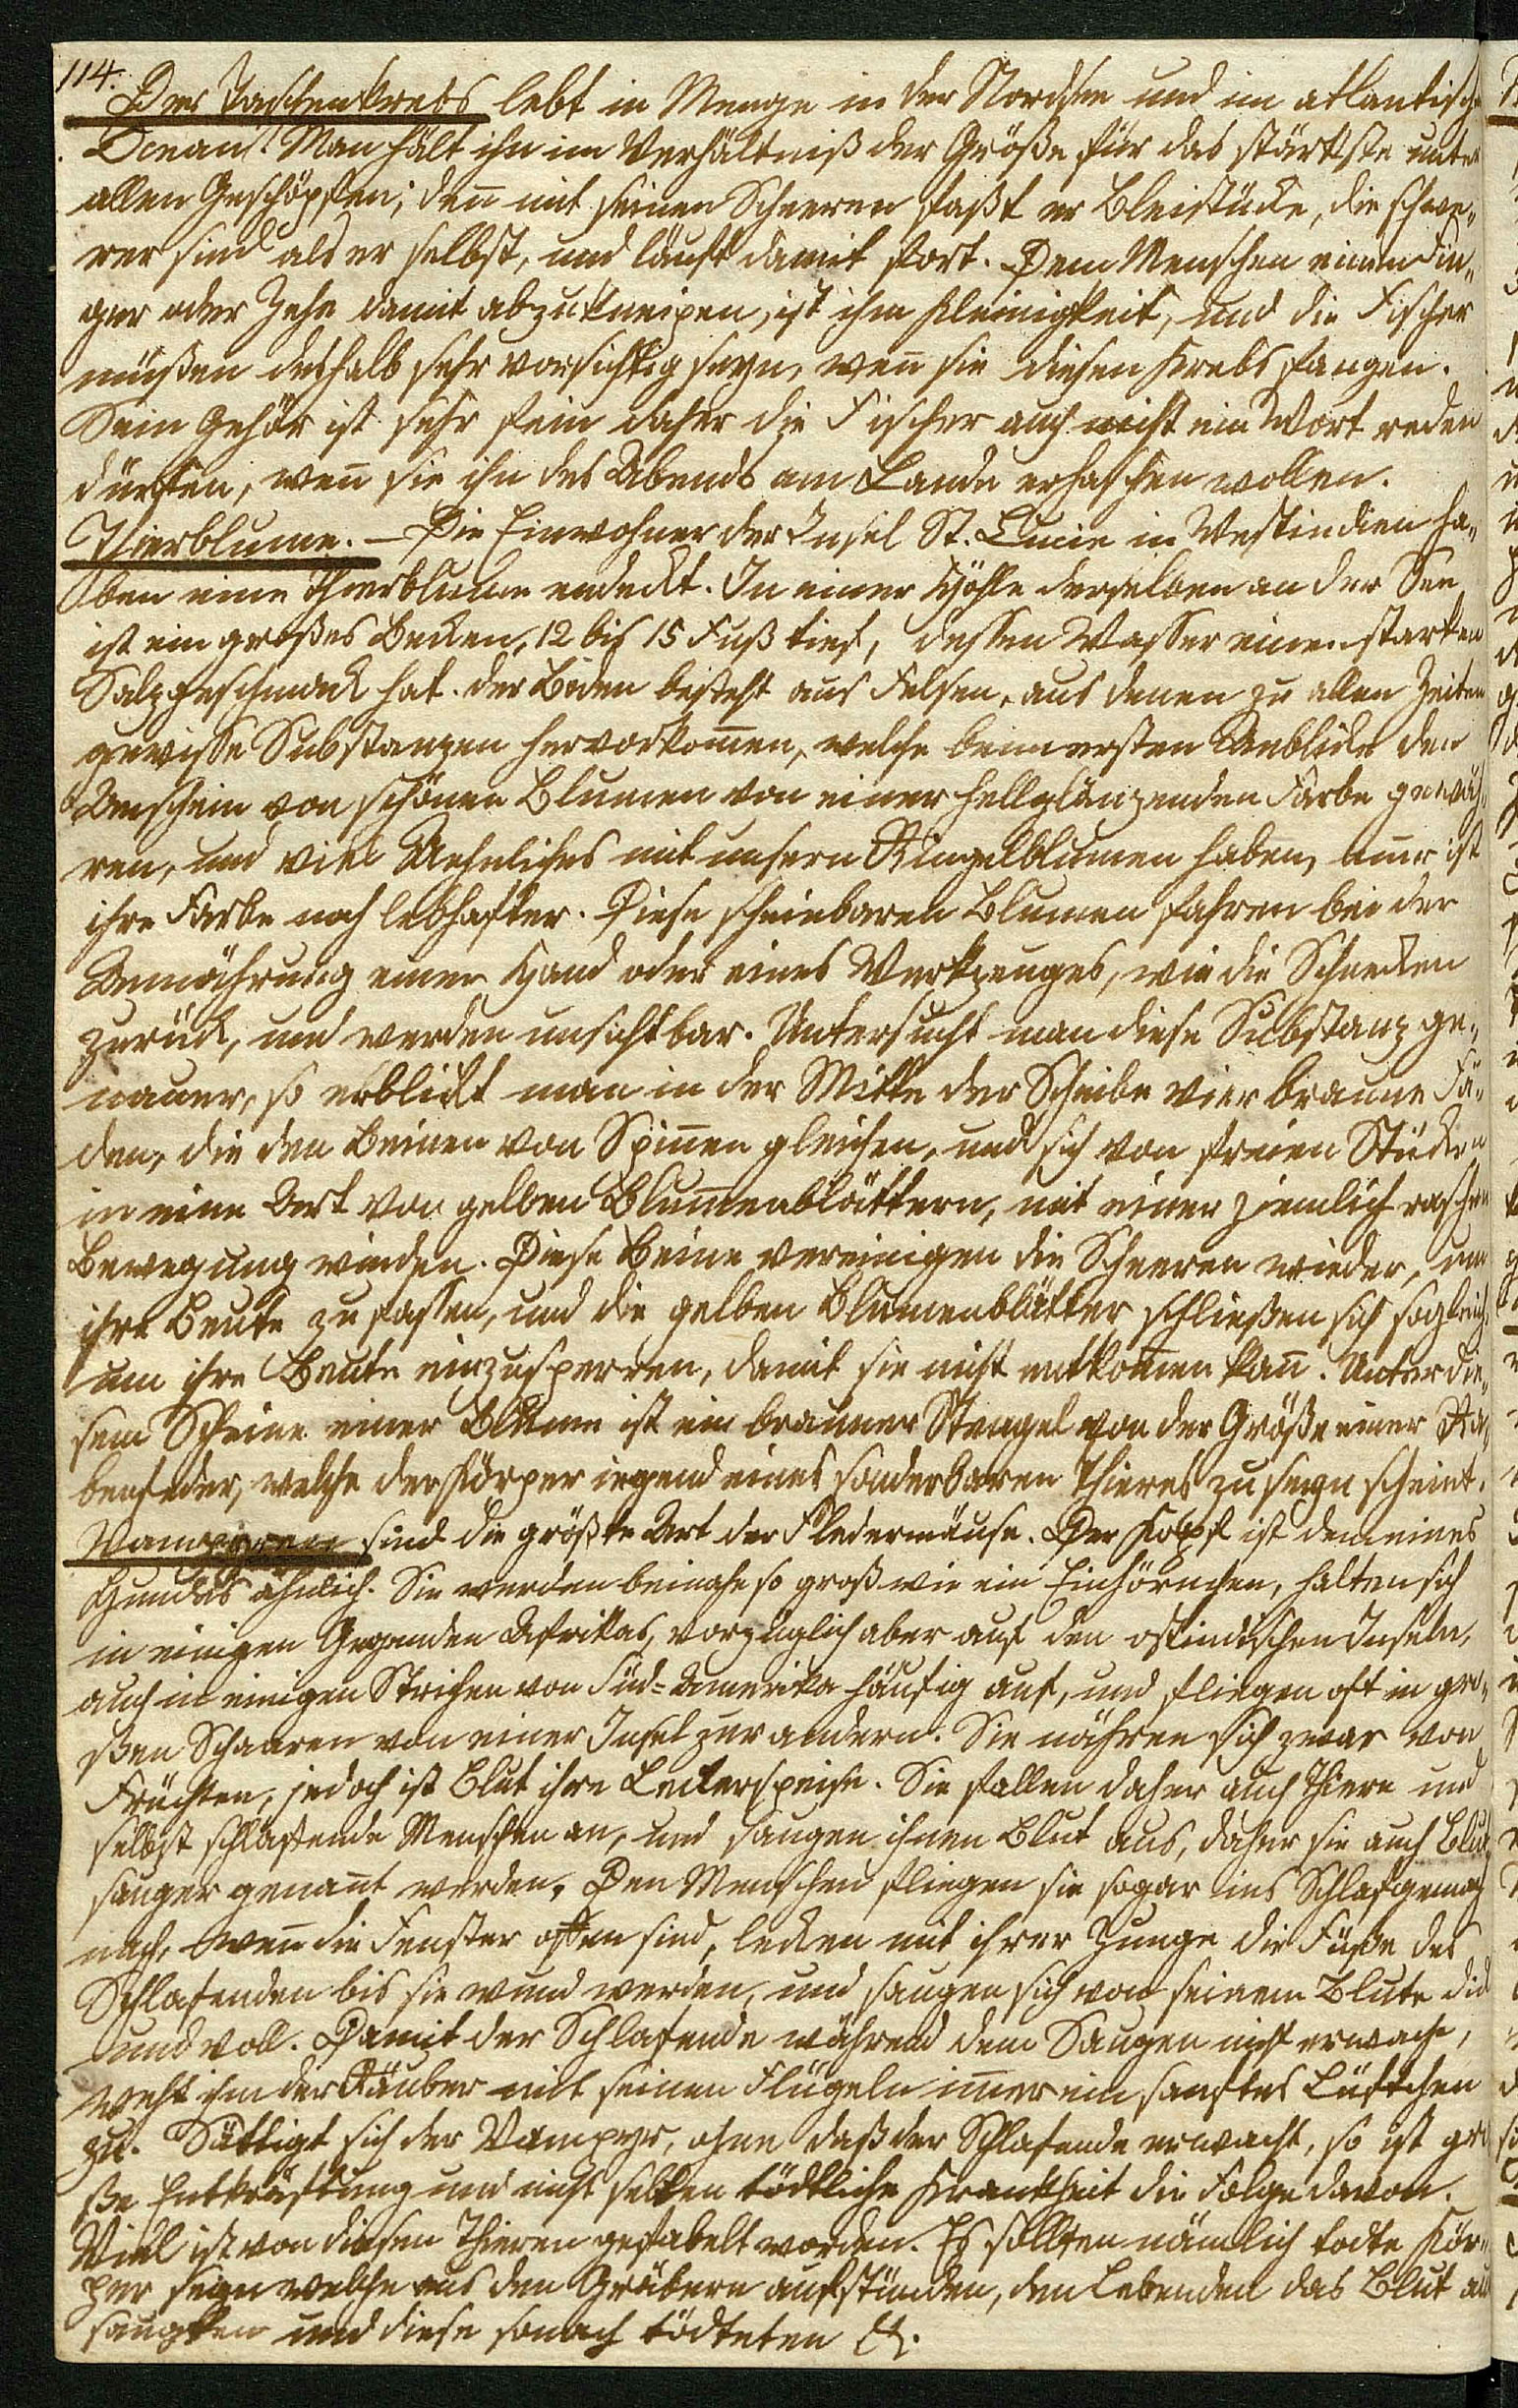 114.
Der Taschenkrebs lebt in Menge in der Nordsee und im atlantisch
Ocean! Man hält ihn im Verhältniß der Größe für das stärkste unter
allen Geschöpfen; deñ mit seinen Scheeren faßt er Bleistücke, die schwe„
rer sind als er selbst, und läuft damit fort. Dem Menschen einen Fin„
ger oder Zehe damit abzukneipen, ist ihm Kleinigkeit, und die Fischer
müßen deshalb sehr vorsichtig seyn, weñ sie diesen Krebs fangen.
Sein Gehör ist sehr fein daher die Fischer auch nicht ein Wort reden
dürfen, weñ sie ihn des Abends am Lande erhaschen wollen.
Thierblume. – Die Einwohner der Insel St. Lucie in Westindien ha„
ben eine Thierblume endeckt. In einer Höhle derselben an der See
ist ein großes Becken, 12 bis 15 Fuß tief, dessen Wasser einen starken
Salzgeschmack hat. der Boden besteht aus Felsen, aus denen zu allen Zeiten
gewisse Substanzen hervorkom̃en, welche beim ersten Anblicke den
Anschein von schönen Blumen von einer hellglänzenden Farbe gewäh„
ren, und viel Aehnliches mit unsern Ringelblumen haben, nur ist
ihre Farbe noch lebhafter. Diese scheinbaren Blumen fahren bei der
Annährung einer Hand oder eines Werkzeuges, wie die Schnecken
zurück, und werden unsichtbar. Untersucht man diese Substanz ge„
nauer, so erblickt man in der Mitte der Scheibe vier braune Fä„
den, die den Beinen von Spiñen gleichen, und sich von freien Stücken
in eine Art von gelben Blumenblättern, mit einer ziemlich raschen
Bewegung winden. Diese Beine vereinigen die Scheeren wieder, um
ihre Beute zu fassen, und die gelben Blumenblätter schließen sich sogleich,
um ihre Beute einzusperren, damit sie nicht entkom̃en kañ. Unter die„
sem Scheine einer Blume ist ein brauner Stengel von der Größe einer Ra„
benfeder, welche der Körper irgend eines sonderbaren Thieres zu seyn scheint.
Vampyren sind die größte Art der Fledermäuse. Der Kopf ist dem eines
Hundes ähnlich. Sie werden beinahe so groß wie ein Eichhörnchen, halten sich
in einigen Gegenden Afrikas, vorzüglich aber auf den ostindischen Inseln,
auch in einigen Strichen von Süd-Amerika häufig auf, und fliegen oft in gro„
ßen Schaaren von einer Insel zur andern. Sie nähren sich zwar von
Früchten, jedoch ist Blut ihre Leckerspeise. Sie fallen daher auch Thiere und
selbst schlafende Menschen an, und saugen ihnen Blut aus, daher sie auch Blut„
sauger genañt werden. Den Menschen fliegen sie sogar ins Schlafgemach
nach, weñ die Fenster offen sind, lecken mit ihrer Zunge die Füße des
Schlafenden bis sie wund werden, und saugen sich von seinem Blute dick
und voll. Damit der Schlafende während dem Saugen nicht erwache,
weht ihm der Räuber mit seinen Flügeln im̃er ein sanftes Lüftchen
zu. Sättigt sich der Vampyr, ohne daß der Schlafende erwacht, so ist gro
ße Entkräftung und nicht selten tödtliche Krankheit die Folge davon.
Viel ist von diesen Thieren gefabelt worden. Es sollten nämlich todte Kör„
per seyn welche aus den Gräbern aufstünden, den Lebenden das Blut aus
saugten und diese sonach tödteten &.